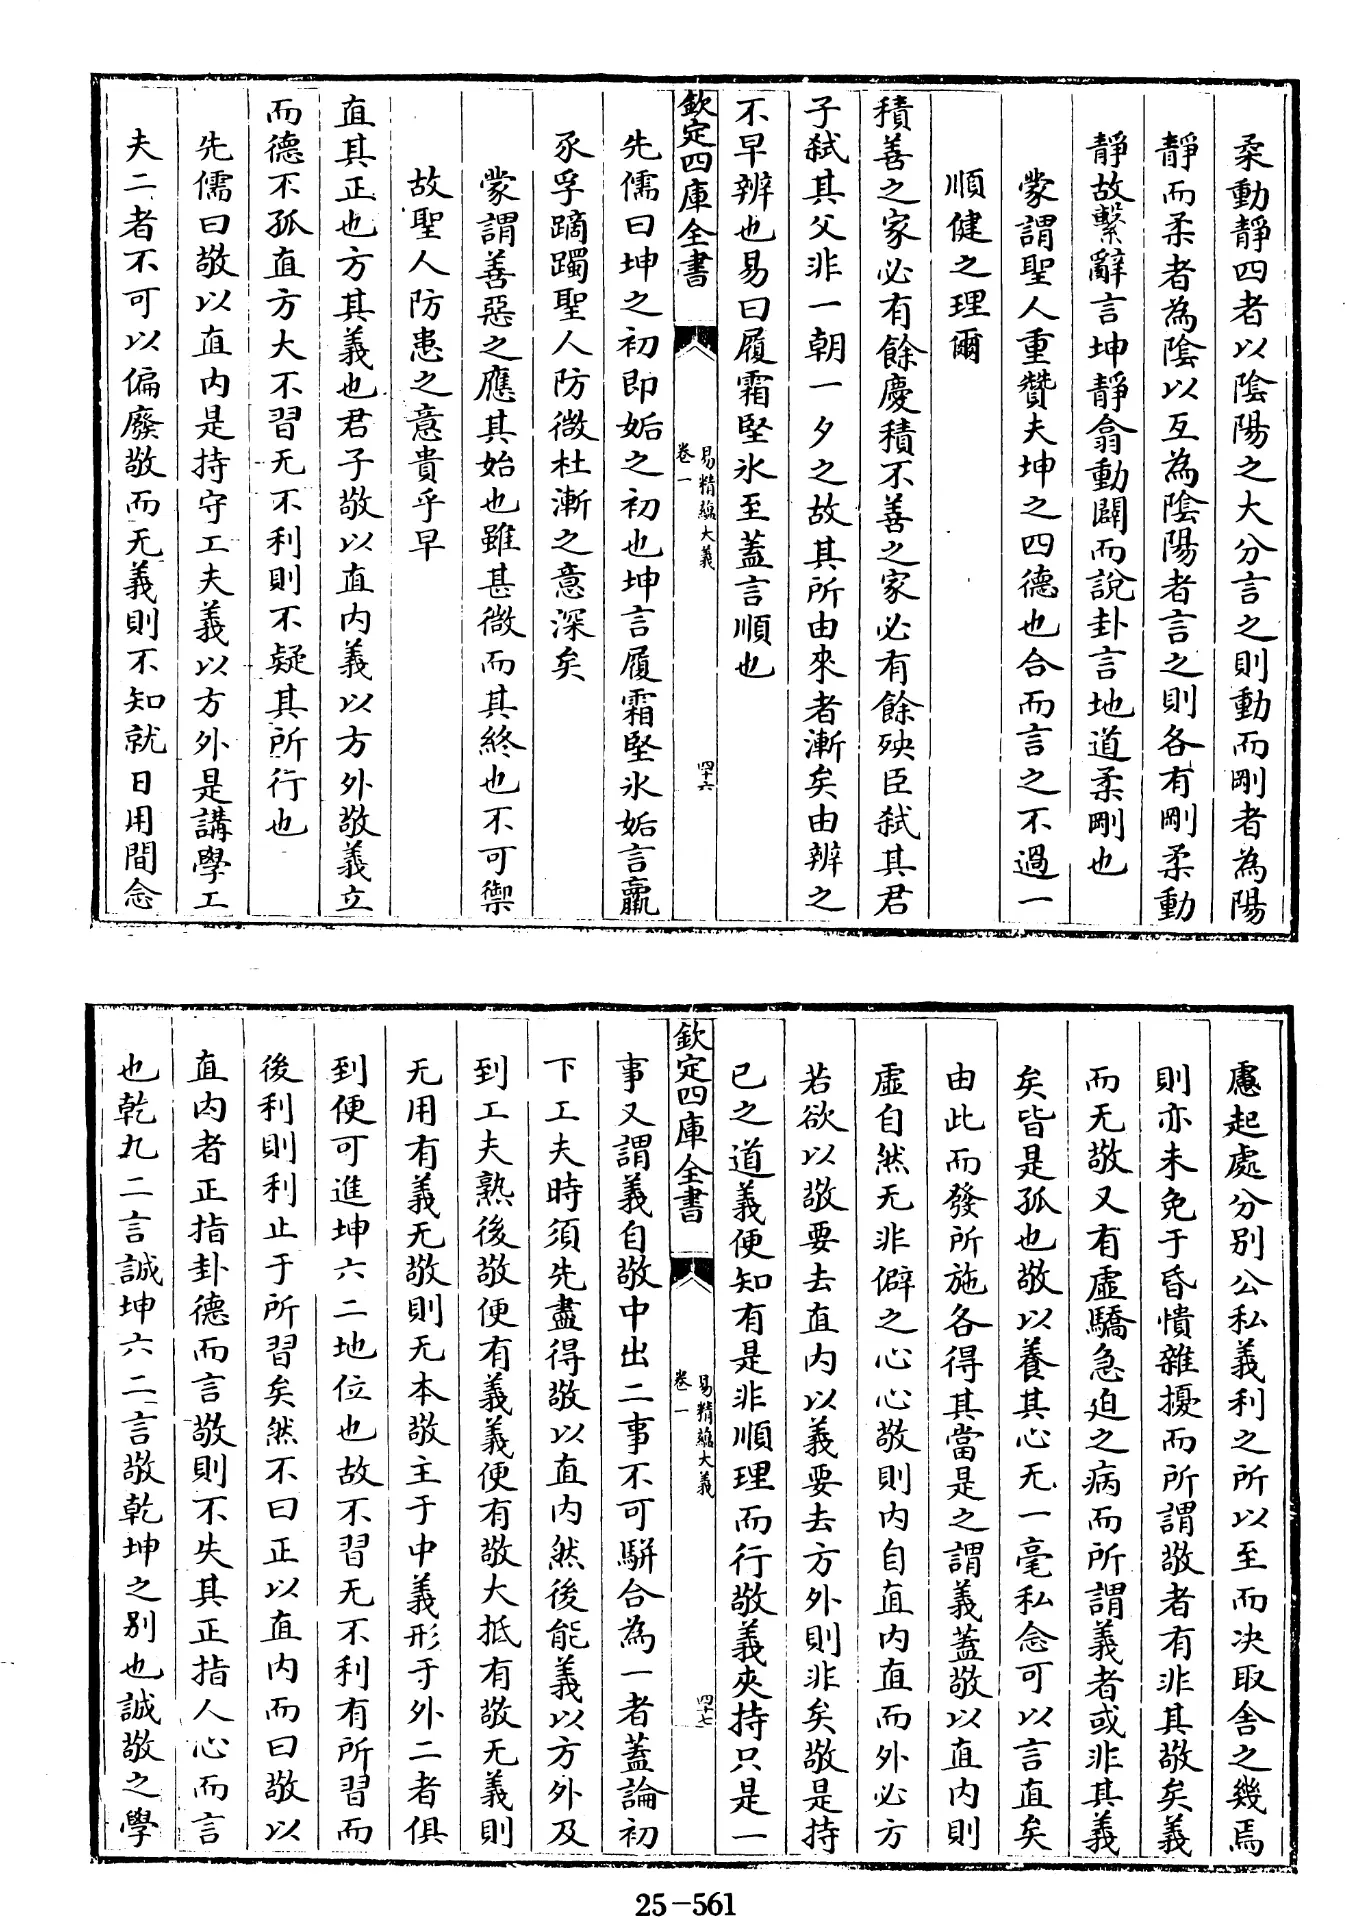 柔動靜四者以陰陽之大分言之則動而剛者為陽
靜而柔者為陰以互為陰陽者言之則各有剛柔動
靜故繫辭言坤靜翕動闢而說卦言地道柔剛也
蒙謂聖人重贊夫坤之四德也合而言之不過一
順健之理爾
積善之家必有餘慶積不善之家必有餘殃臣弒其君
子弒其父非一朝一夕之故其所由來者漸矣由辨之
不早辨也易曰履霜堅氷至蓋言順也
欽定四庫全書
易精蘊大義
卷一
四十六
先儒曰坤之初即姤之初也坤言履霜堅氷姤言羸
豕孚蹢躅聖人防微杜漸之意深矣
蒙謂善惡之應其始也雖甚微而其終也不可禦
故聖人防患之意貴乎早
直其正也方其義也君子敬以直內義以方外敬義立
而德不孤直方大不習无不利則不疑其所行也
先儒曰敬以直內是持守工夫義以方外是講學工
夫二者不可以偏廢敬而无義則不知就日用間念
慮起處分別公私義利之所以至而決取舍之幾焉
則亦未免于昏憒雜擾而所謂敬者有非其敬矣義
而无敬又有虛驕急迫之病而所謂義者或非其義
矣皆是孤也敬以養其心无一毫私念可以言直矣
由此而發所施各得其當是之謂義蓋敬以直內則
虛自然无非僻之心心敬則內自直內直而外必方
若欲以敬要去直內以義要去方外則非矣敬是持
己之道義便知有是非順理而行敬義夾持只是一
欽定四庫全書
易精蘊大義
卷一
四十七
事又謂義自敬中出二事不可騈合為一者蓋論初
下工夫時須先盡得敬以直內然後能義以方外及
到工夫熟後敬便有義義便有敬大抵有敬无義則
无用有義无敬則无本敬主于中義形于外二者俱
到便可進坤六二地位也故不習无不利有所習而
後利則利止于所習矣然不曰正以直內而曰敬以
直內者正指卦德而言敬則不失其正指人心而言
也乾九二言誠坤六二言敬乾坤之別也誠敬之學
25-561